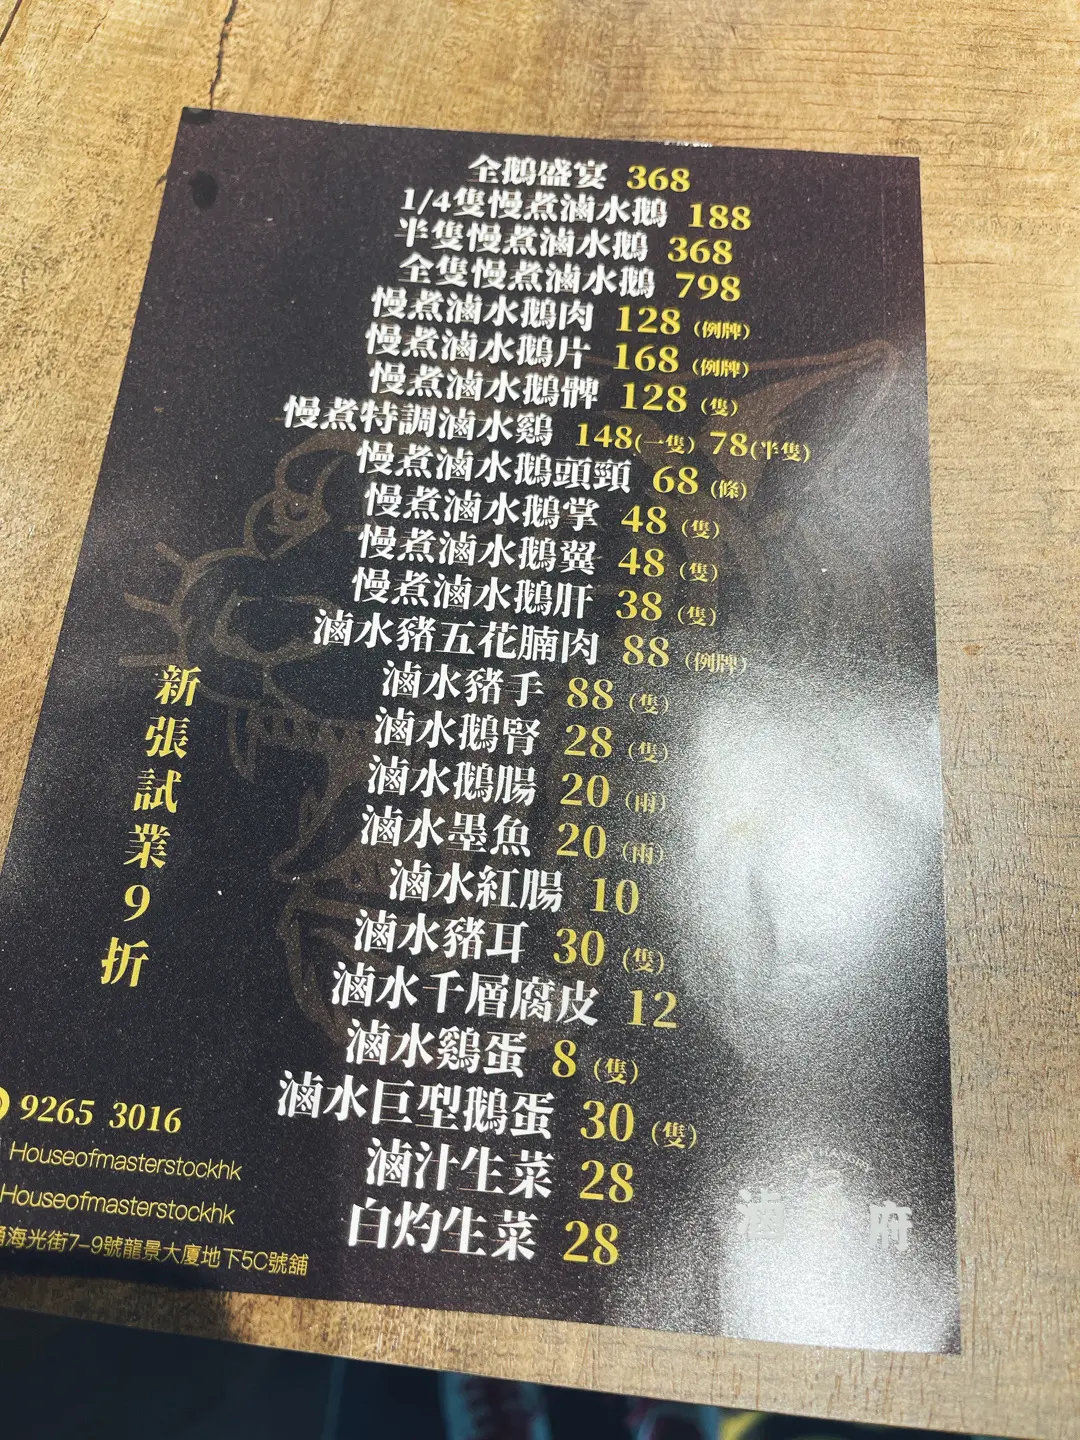 全鵝盛宴 368
1/4隻慢煮滷水鵝 188
半隻慢煮滷水鵝 368
全隻慢煮滷水鵝 798
慢煮滷水鵝肉 128 (例牌)
慢煮滷水鵝片 168 (例牌)
慢煮滷水鵝髀 128 (隻)
慢煮特調滷水鷄 148(一隻) 78(半隻)
慢煮滷水鵝頭頸 68 (條)
慢煮滷水鵝掌 48 (隻)
慢煮滷水鵝翼 48 (隻)
慢煮滷水鵝肝 38 (隻)
滷水豬五花腩肉 88 (例牌)
滷水豬手 88 (隻)
滷水鵝腎 28 (隻)
滷水鵝腸 20 (両)
滷水墨魚 20 (両)
滷水紅腸 10
滷水豬耳 30 (隻)
滷水千層腐皮 12
滷水鷄蛋 8 (隻)
滷水巨型鵝蛋 30 (隻)
滷汁生菜 28
白灼生菜 28
新張試業9折
9265 3016
Houseofmasterstockhk
Houseofmasterstockhk
海光街7-9號龍景大廈地下5C號舖
滷 府